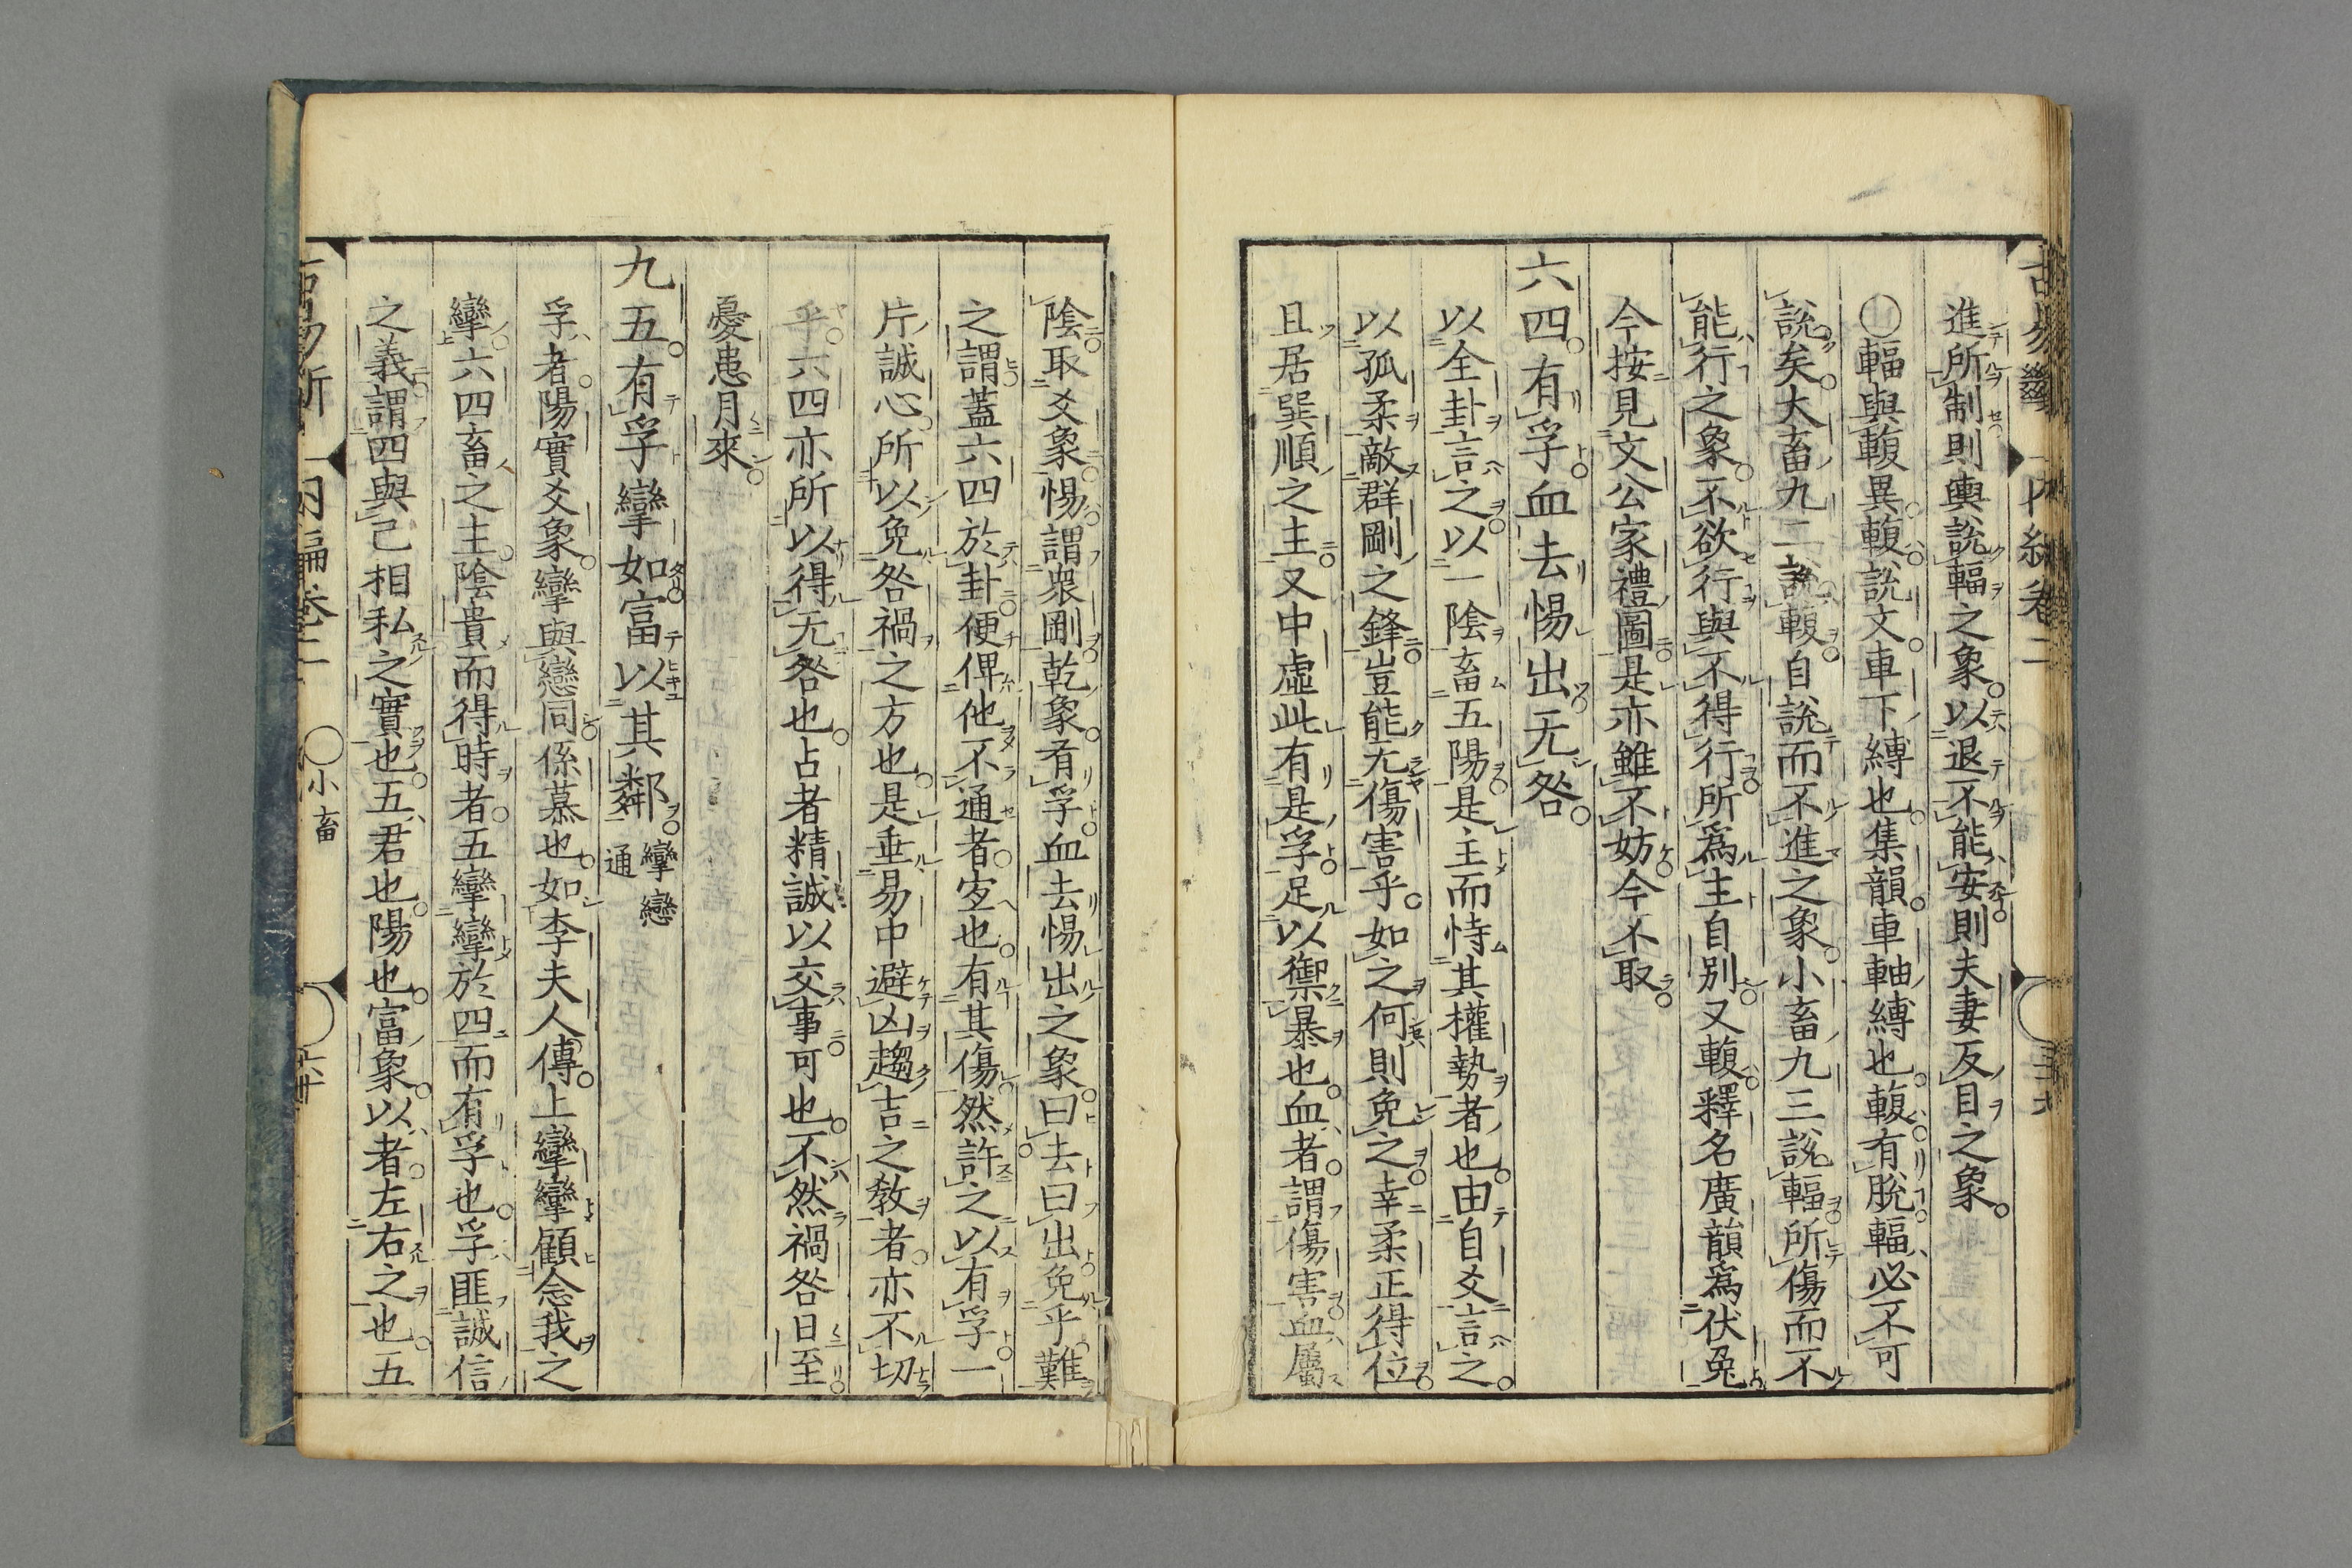 進所制則輿說輻之象以退不能安則夫妻反目之象
○輻與輹異輹說文車下縛也集韻車軸縛也輹有脫輻必不可
說矣大畜九二說輹自說而不進之象小畜九三說輻所傷而不
能行之象不欲行與不得行所爲主自別又輹釋名廣韻爲伏兔
今按見文公家禮圖是亦雖不妨今不取
六四有孚血去惕出无咎
以全卦言之以一陰畜五陽是主而恃其權勢者也由自爻言之
以孤柔敵群剛之鋒豈能无傷害乎如之何則免之幸柔正得位
且居巽順之主又中虛此有是孚足以禦暴也血者謂傷害血屬
陰取爻象惕謂衆剛乾象有孚血去惕出之象曰去曰出免乎難
之謂蓋六四於卦便俾他不通者宜也有其傷然許之以有孚一
片誠心所以免咎禍之方也是垂易中避凶趨吉之教者亦不切
乎六四亦所以得无咎也占者精誠以交事可也不然禍咎日至
憂患月來
九五有孚攣如富以其鄰 攣戀通
孚者陽實爻象攣與戀同係慕也如李夫人傳上攣攣顧念我之
攣六四畜之主陰貴而得時者五攣攣於四而有孚也孚匪誠信
之義謂四與己相私之實也五君也陽也富象以者左右之也五
小畜